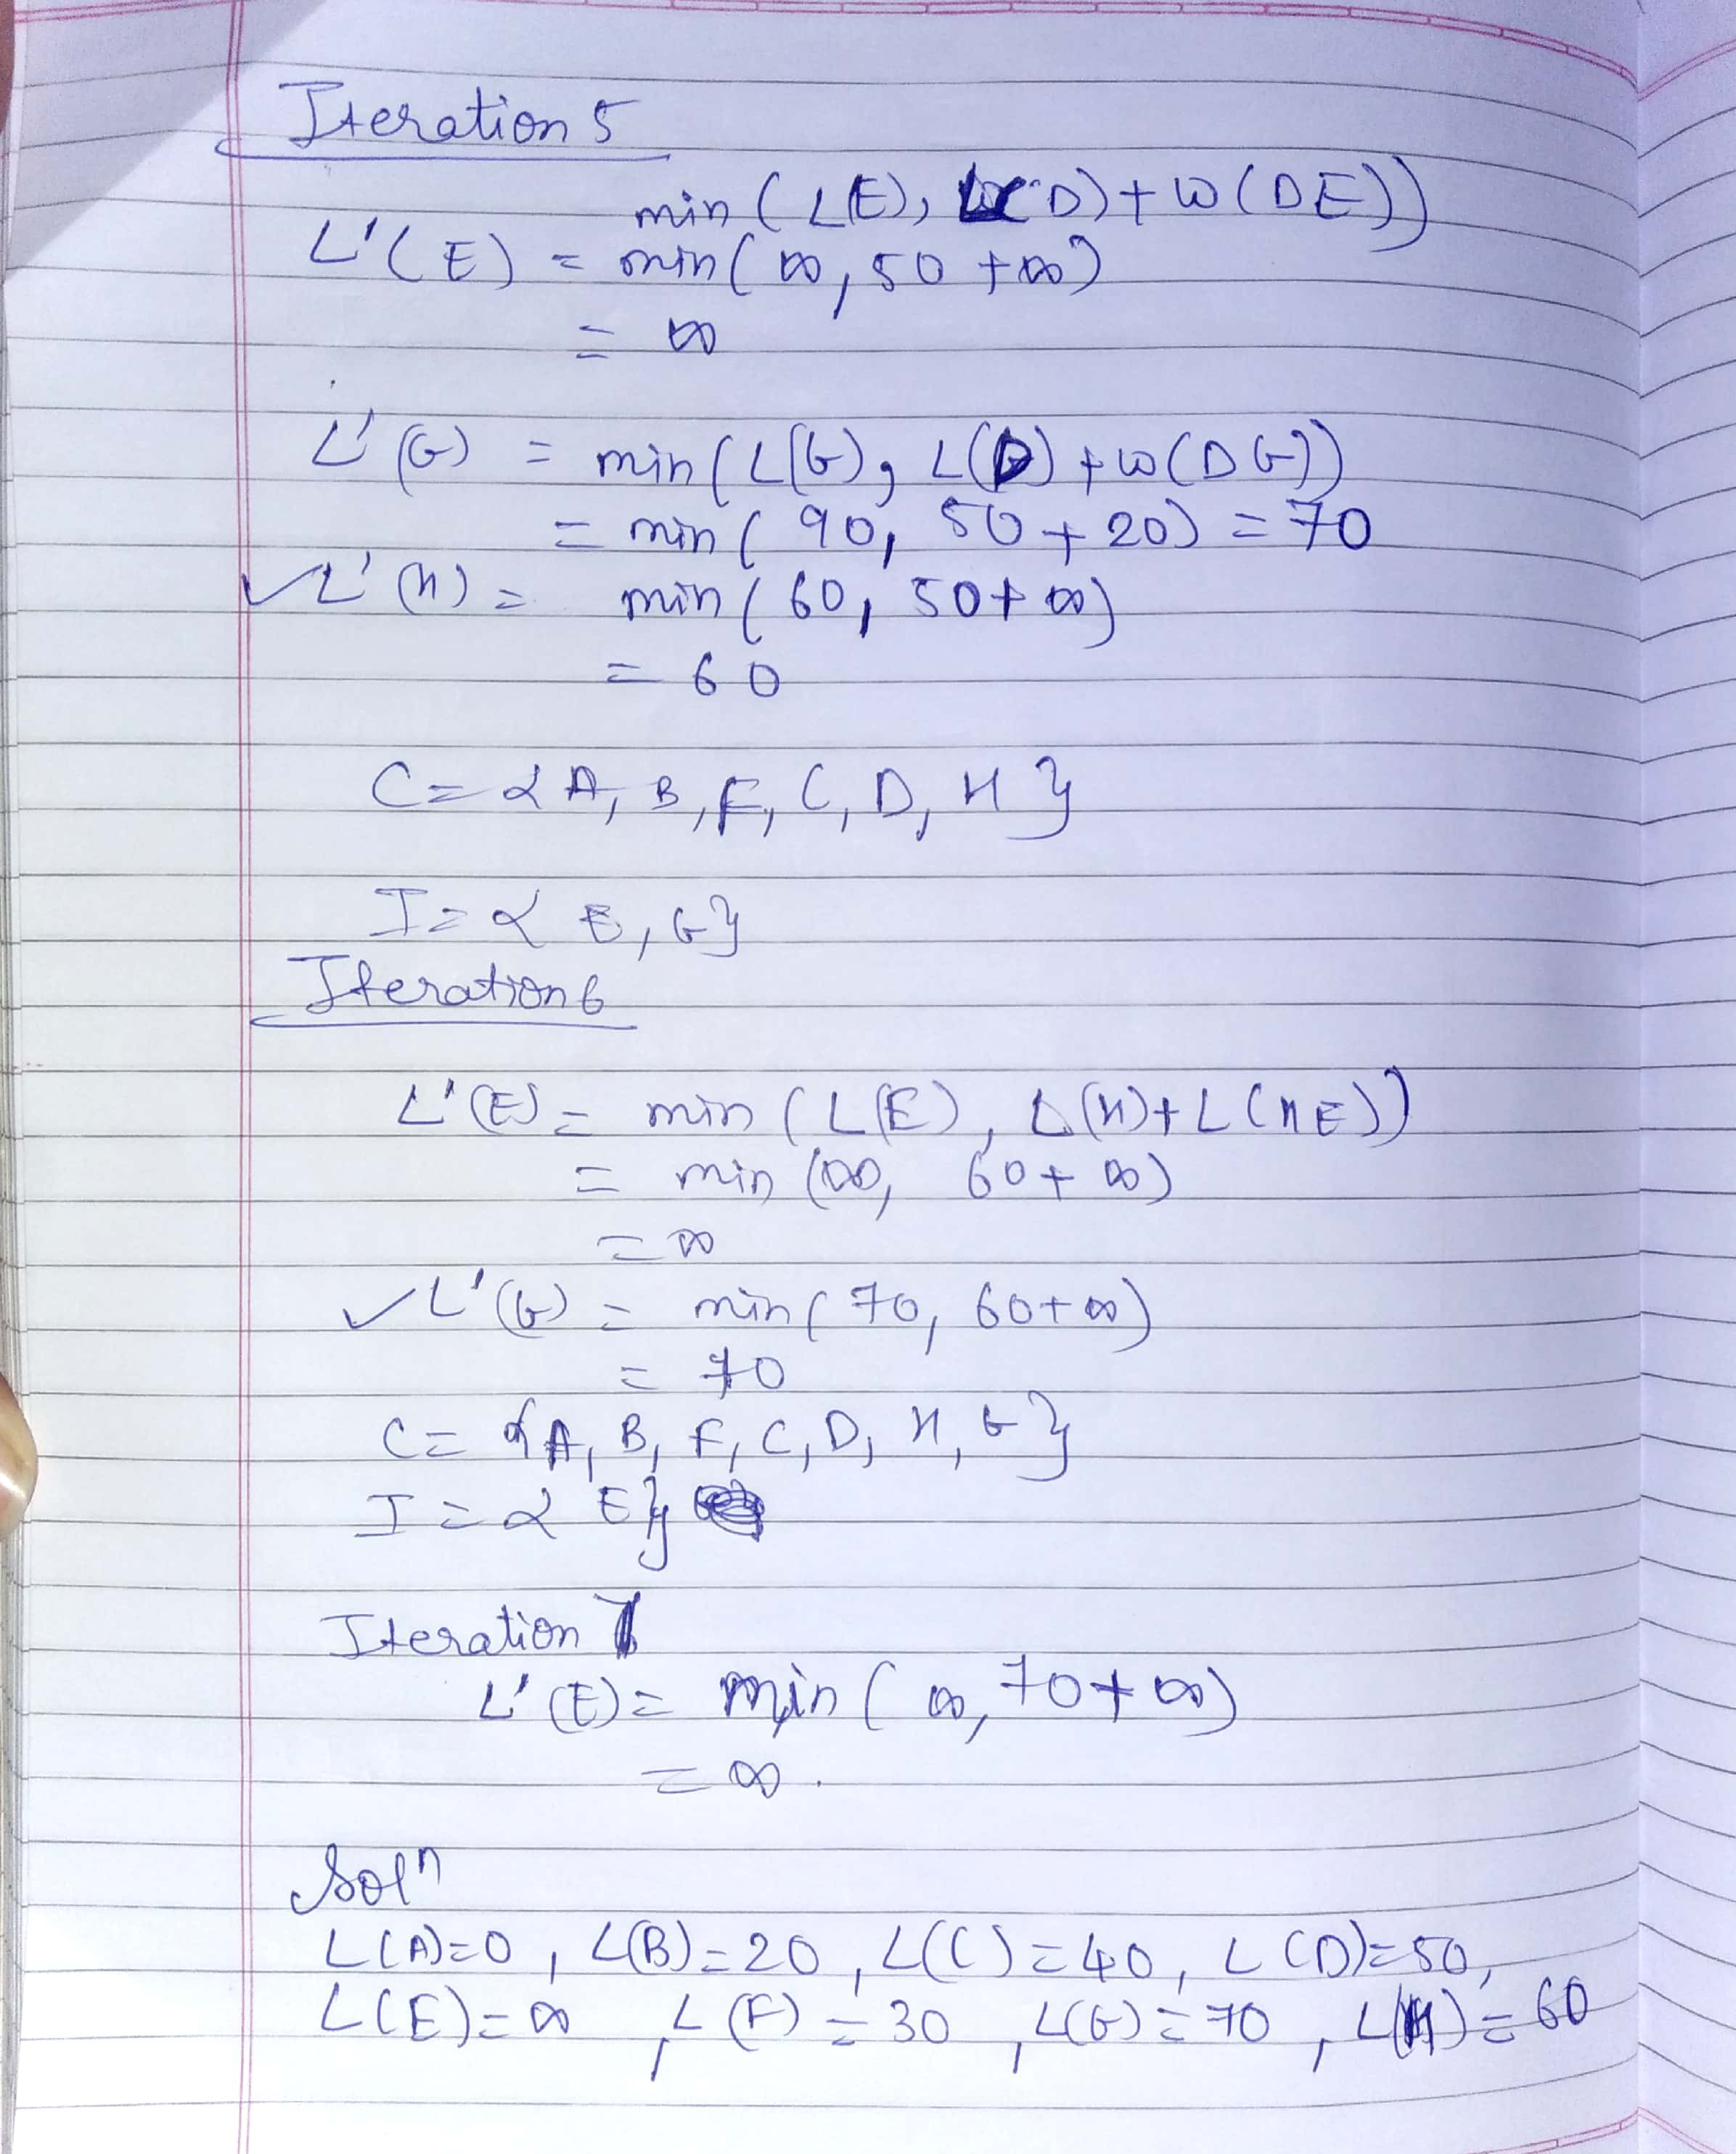 Iteration 5
min ( L(E), L(D) + w (DE))
L'(E) = min ( ∞, 50 + ∞)
= ∞
L'(G) = min ( L(G), L(D) + w (DG))
= min ( 90, 50 + 20) = 70
✓ L'(H) = min ( 60, 50 + ∞)
= 60
C = { A, B, F, C, D, H }
I = { E, G}
Iteration 6
L'(E) = min ( L(E), L(H) + L (HE))
= min (∞, 60 + ∞)
= ∞
✓ L'(G) = min ( 70, 60 + ∞)
= 70
C = { A, B, F, C, D, H, G }
I = { E }
Iteration 7
L'(E) = min ( ∞, 70 + ∞)
= ∞.
Solⁿ
L(A)=0, L(B)=20, L(C)=40, L(D)=50,
L(E)=∞, L(F)=30, L(G)=70, L(H)=60